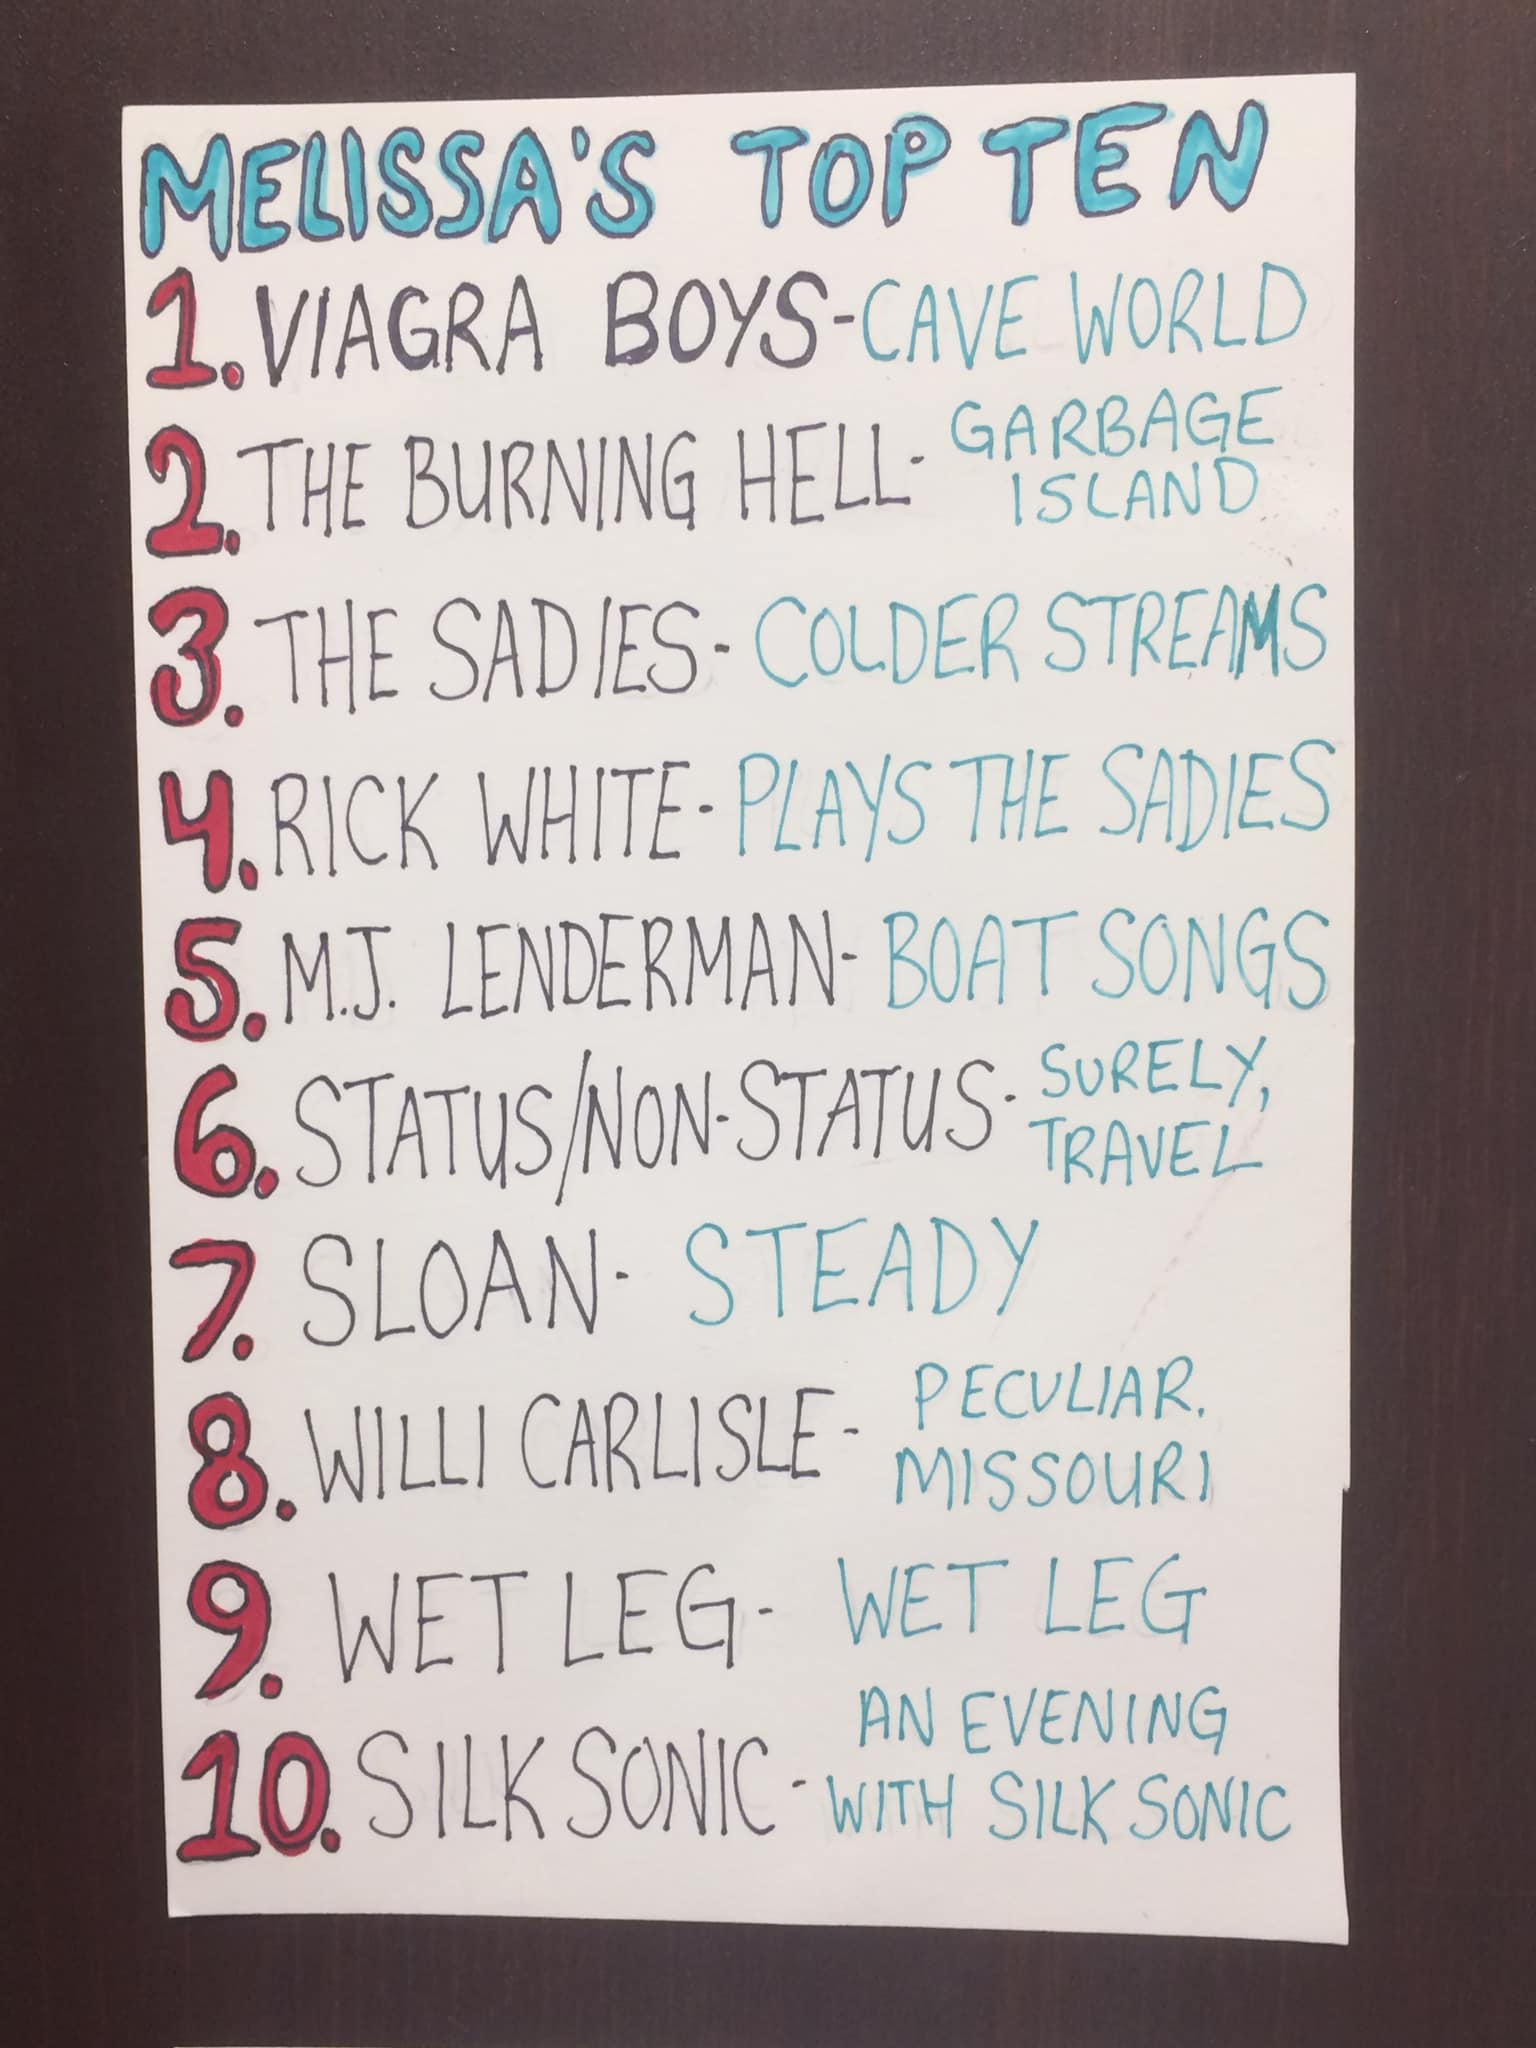 MELISSA'S TOP TEN
1. VIAGRA BOYS - CAVE WORLD
2. THE BURNING HELL - GARBAGE
ISLAND
3. THE SADIES - COLDER STREAMS
4. RICK WHITE - PLAYS THE SADIES
5. M.J. LENDERMAN - BOAT SONGS
6. STATUS/NON-STATUS - SURELY,
TRAVEL
7. SLOAN - STEADY
8. WILLI CARLISLE - PECULIAR.
MISSOURI
9. WET LEG - WET LEG
10. SILK SONIC - AN EVENING
WITH SILK SONIC